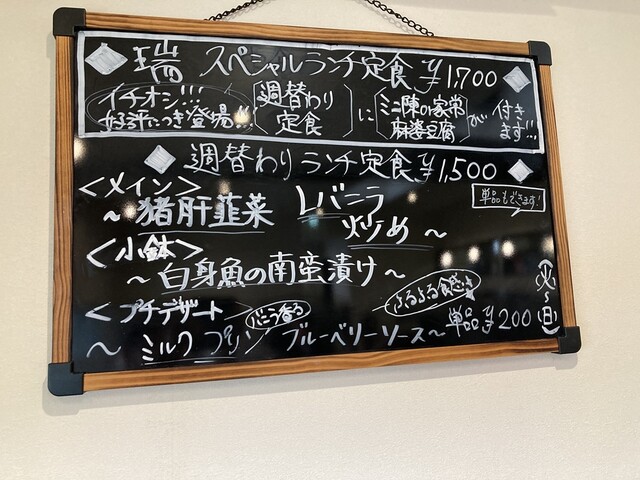 ◆ 瑞 スペシャルランチ定食 ¥1,700 ◆
イチオシ!!! 好評につき登場!!
週替わり定食 に ミニ陳の家常麻婆豆腐 が 付きます!!!
◆ 週替わりランチ定食 ¥1,500 ◆
単品もできます!
<メイン>
~ 猪肝韮菜 レバニラ炒め ~
<小鉢>
~ 白身魚の南蛮漬け ~
<プチデザート> バニラ香る ふるふる食感♪ 単品¥200
~ ミルクプリン ブルーベリーソース ~
(火~日)